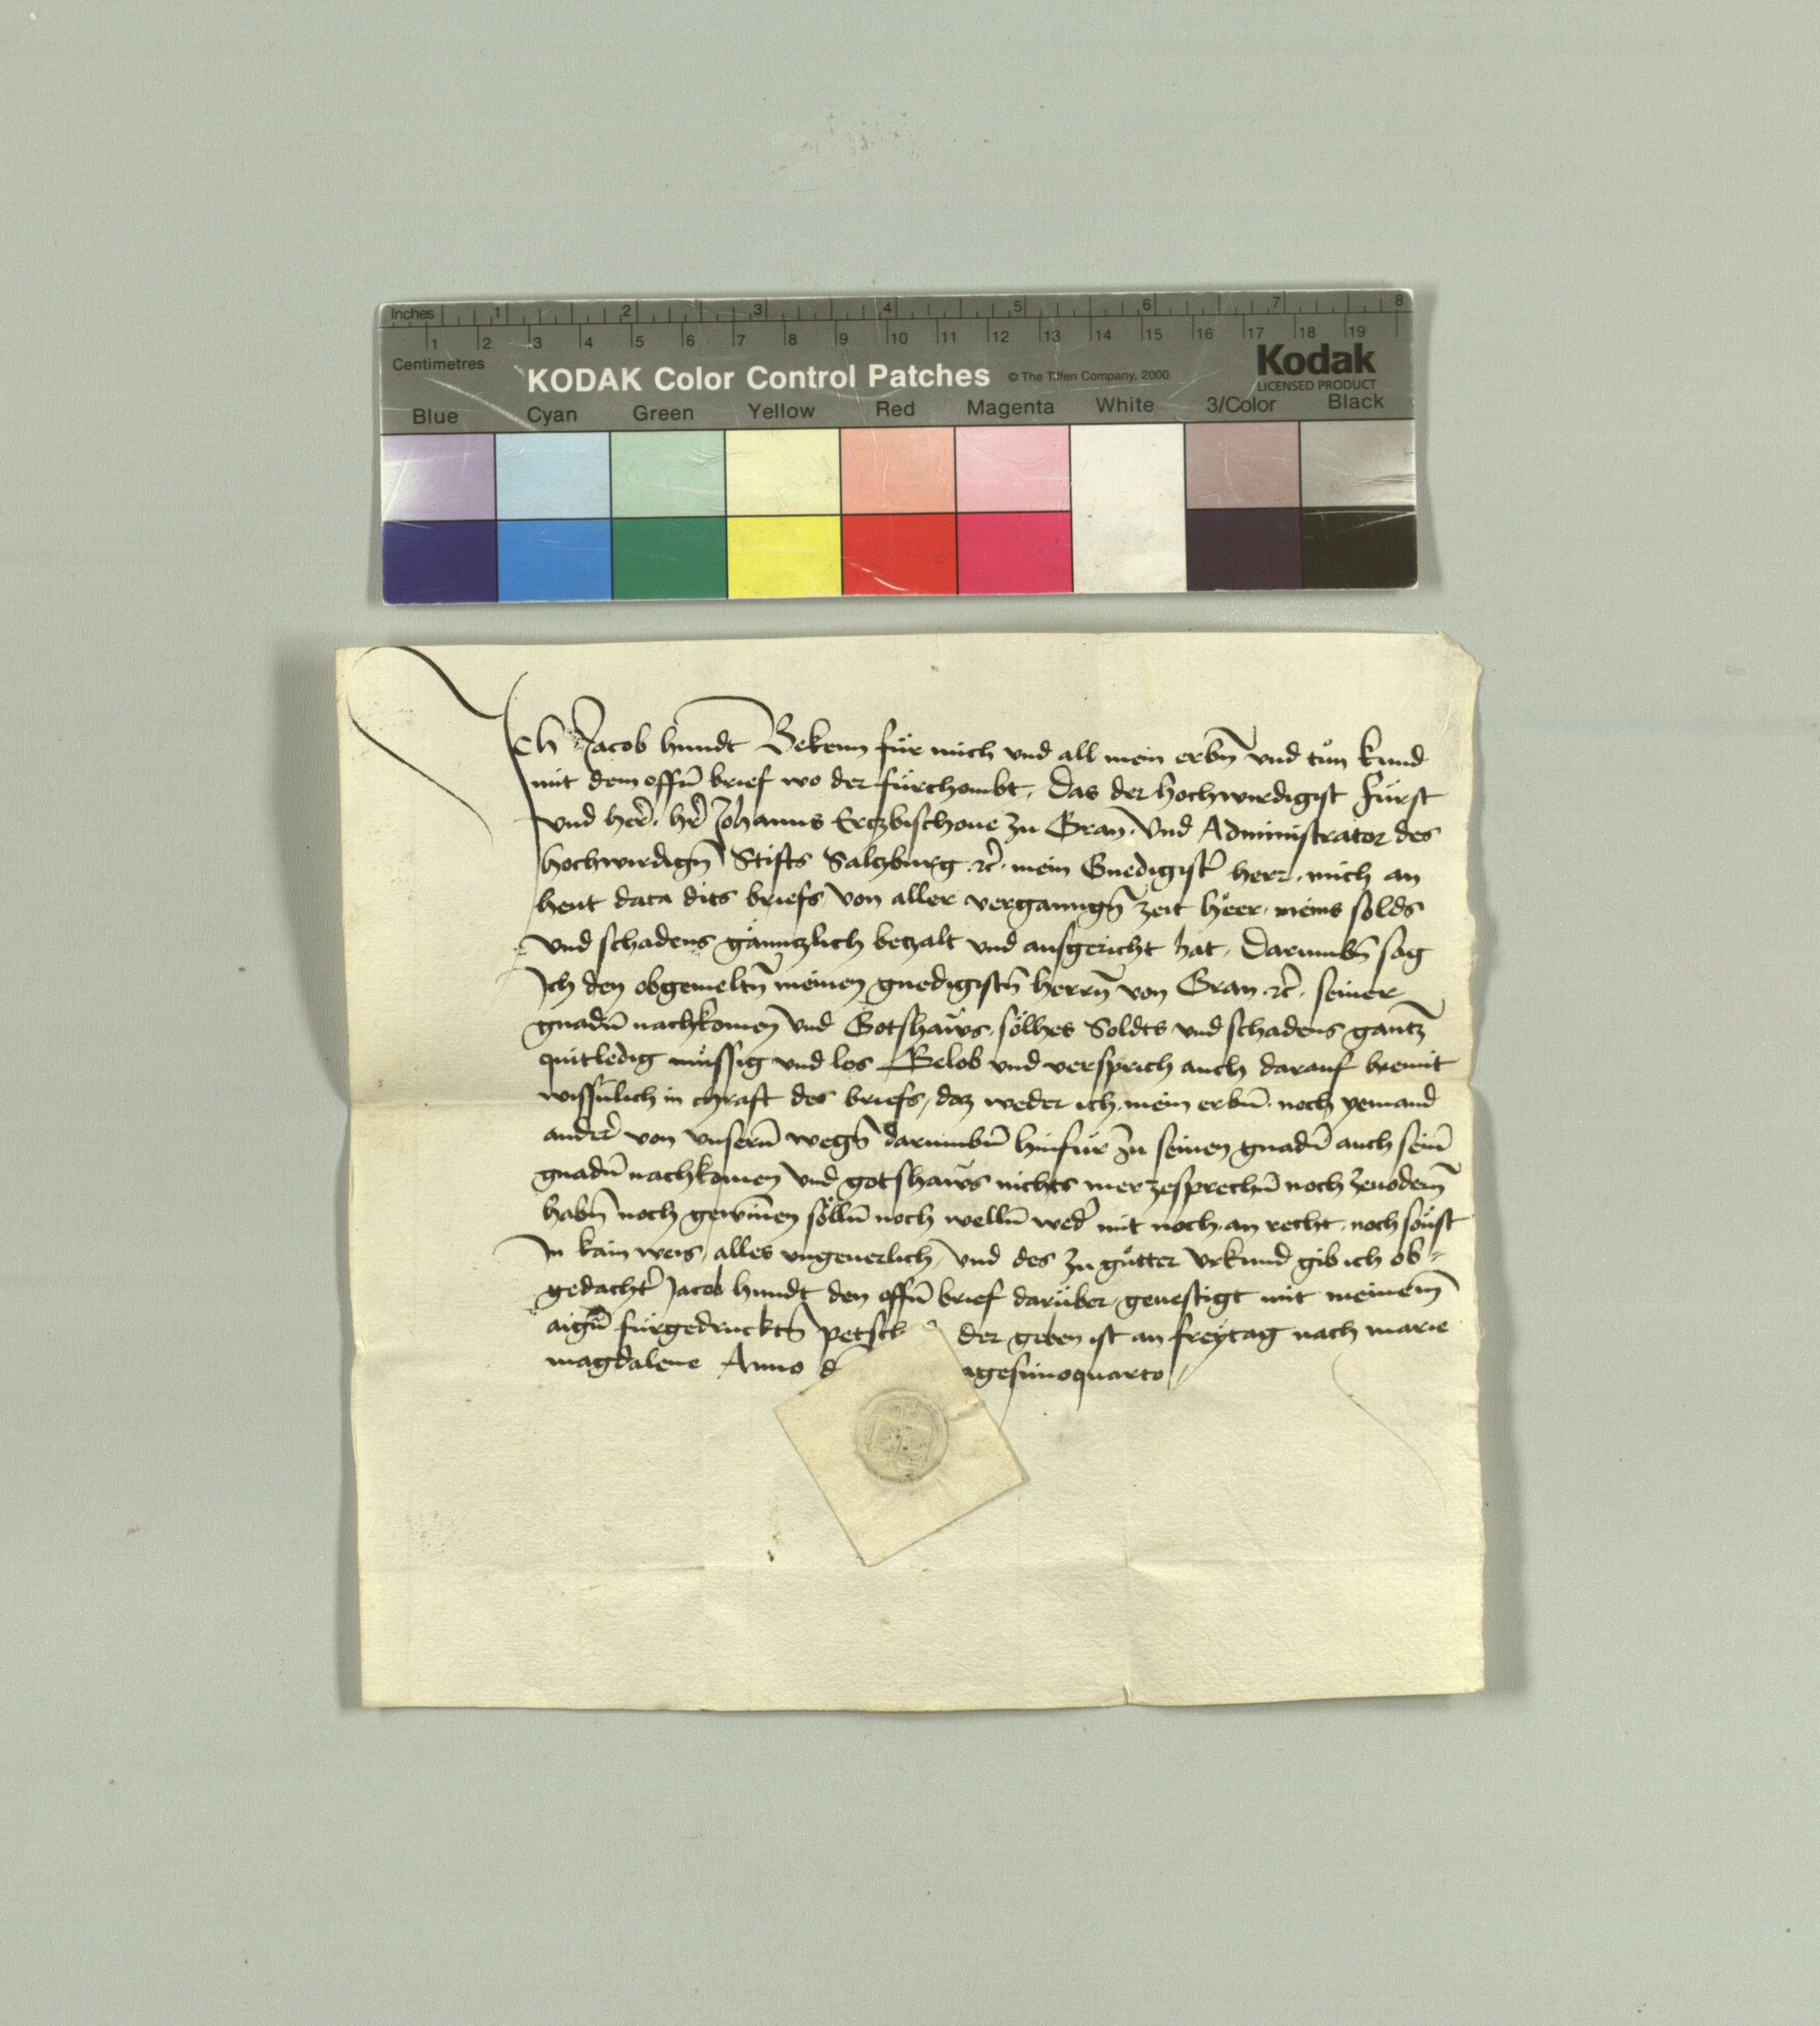 Inches 1 2 3 4 5 6 7 8
1 2 3 4 5 6 7 8 9 10 11 12 13 14 15 16 17 18 19
Centimetres
KODAK Color Control Patches © The Tiffen Company, 2000 Kodak
LICENSED PRODUCT
Blue Cyan Green Yellow Red Magenta White 3/Color Black
Ich Jacob hundt Bekenn für mich vnd all mein erbn̄ vnd tůn kund
mit dem offn̄ brief wo der fürchombt, Das der hochwirdigist Fürst
vnd her̄. hr̄ Johanns Erczbischoue zu Gran. Vnd Administrator des
hochwirdign̄ Stifts Salczburg .ꝛc̄. mein Gnedigist̄ herr. mich an
heut data dits briefs von aller vergangn̄ zeit heer. meins solds
vnd schadens gänntzlich beczalt vnd ausgericht hat. Darumbn̄ sag
Ich den obgemeltn̄ meinen gnedigistn̄ herrn̄ von Gran .ꝛc̄. seiner
gnadn̄ nachkomen vnd Gotshaẅs sölhes Soldts vnd schadens gantz
quitledig müssig vnd los Gelob vnd versprich auch darauf hiemit
wissn̄lich in chraft des briefs, daz weder ich mein erbn̄. noch yemand
ander̄ von vnsern̄ wegn̄ darumbn̄ hinfür zu seinen gnadn̄ auch sein̄
gnadn̄ nachkomen vnd gotshaẅs nichts mer zesprechn̄ noch zeuodern̄
habn̄ noch gewinnen sölln̄ noch welln̄ wed̄ mit noch an recht. noch sünst
In kain weis, alles vngeuerlich, vnd des zu gůtter vrkund gib ich ob-
gedacht̄ Jacob hundt den offn̄ brief darüber geuestigt mit meinem
aign̄ fürgedrucktn̄ petsch der geben ist an freytag nach marie
magdalene Anno d̄ agesimoquarto